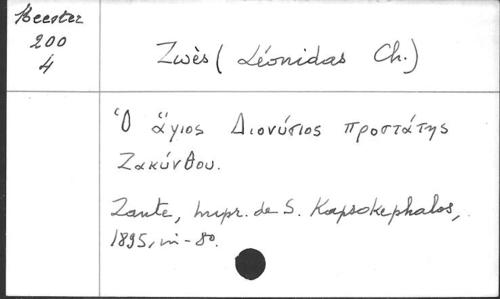 Meester
200
4
Zwès (Léonidas Ch.)
Ὁ ἅγιος Διονύσιος προστάτης
Ζακύνθου.
Zante, Impr. de S. Kapsokephalos,
1895, in-8o.